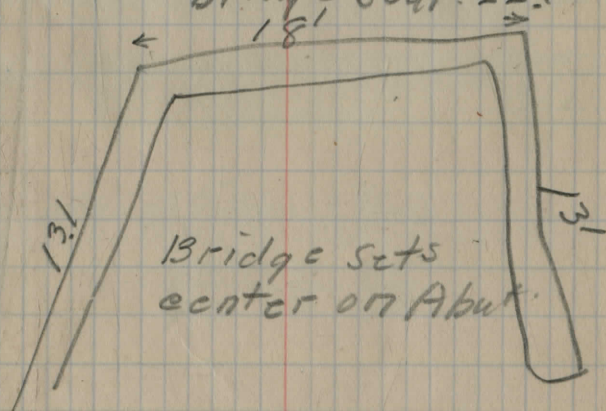 18'
13'
13'
Bridge sets
center on Abut.